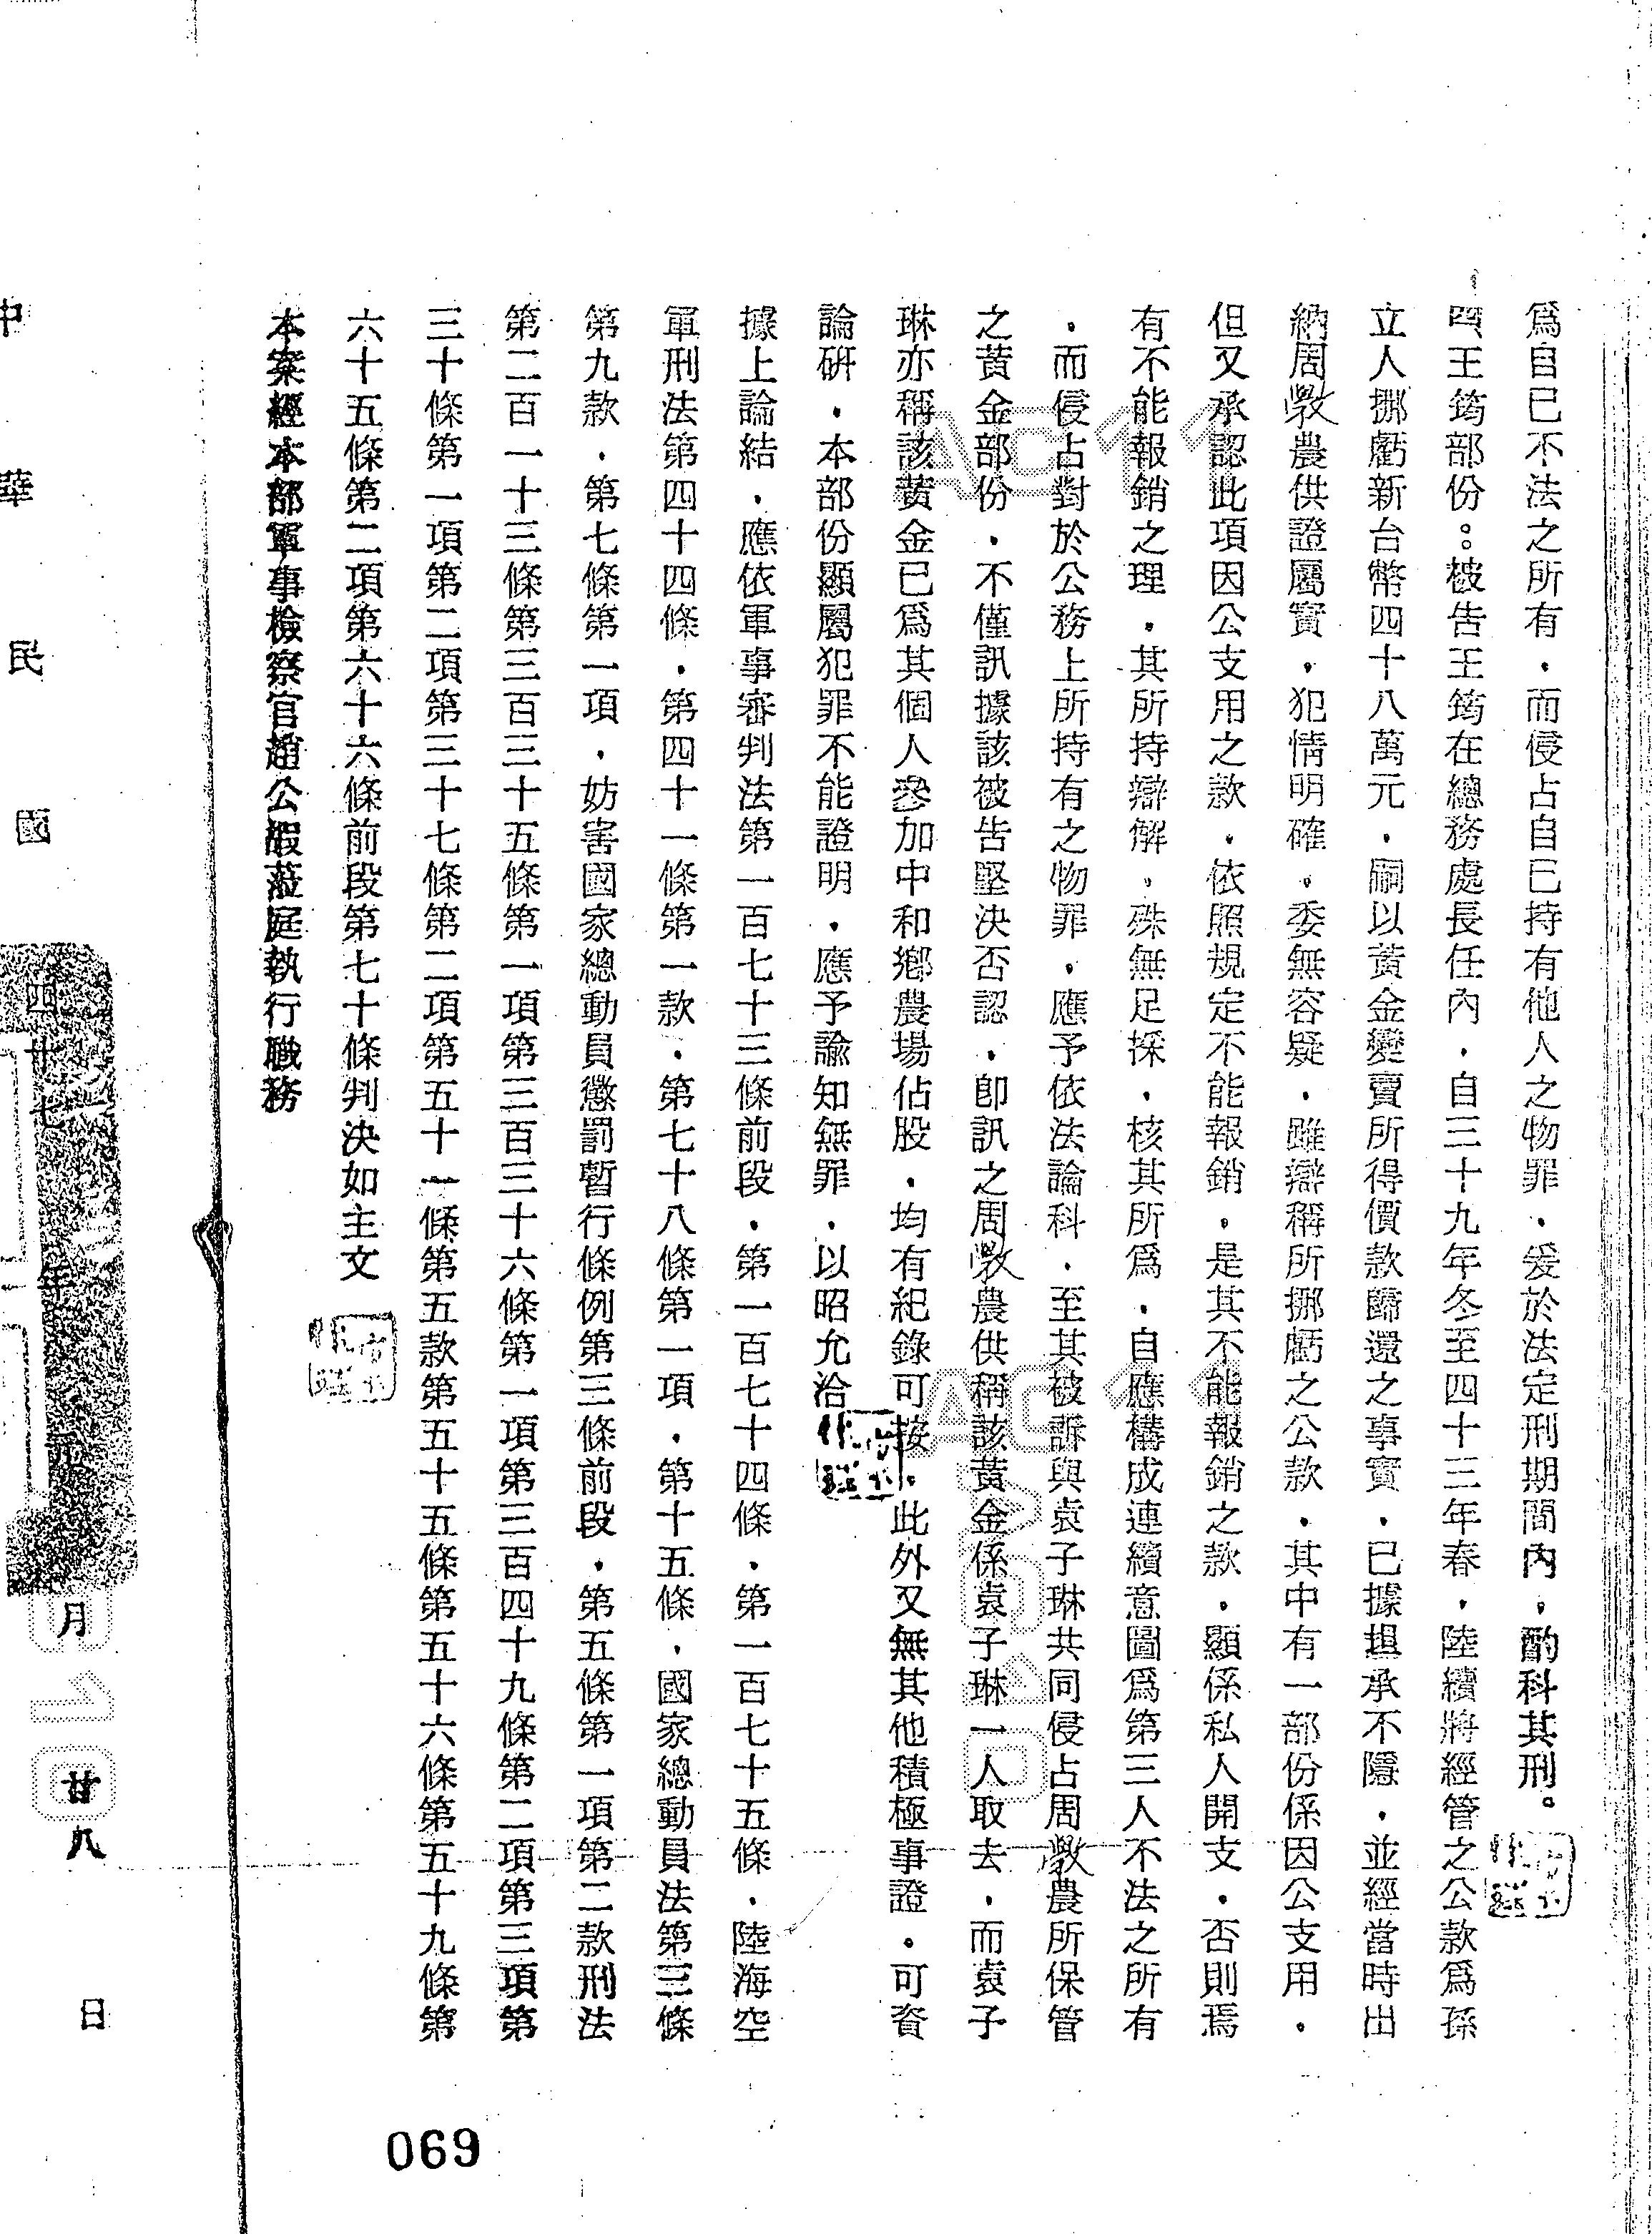 爲自己不法之所有．而侵占自己持有他人之物罪．爰於法定刑期間內．酌科其刑。
四、王筠部份：被告王筠在總務處長任內．自三十九年冬至四十三年春．陸續將經管之公款爲孫
立人挪虧新台幣四十八萬元．嗣以黃金變賣所得價款歸還之事實．已據担承不隱．並經當時出
納周斆農供證屬實．犯情明確．委無容疑．雖辯稱所挪虧之公款．其中有一部份係因公支用．
但又承認此項因公支用之款．依照規定不能報銷．是其不能報銷之款．顯係私人開支．否則焉
有不能報銷之理．其所持辯解．殊無足採．核其所爲．自應構成連續意圖爲第三人不法之所有
．而侵占對於公務上所持有之物罪．應予依法論科．至其被訴與袁子琳共同侵占周斆農所保管
之黃金部份．不僅訊據該被告堅決否認．卽訊之周斆農供稱該黃金係袁子琳一人取去．而袁子
琳亦稱該黃金已爲其個人參加中和鄉農場佔股．均有紀錄可按．此外又無其他積極事證．可資
論硏．本部份顯屬犯罪不能證明．應予諭知無罪．以昭允洽
據上論結．應依軍事審判法第一百七十三條前段．第一百七十四條．第一百七十五條．陸海空
軍刑法第四十四條．第四十一條第一款．第七十八條第一項．第十五條．國家總動員法第三條
第九款．第七條第一項．妨害國家總動員懲罰暫行條例第三條前段．第五條第一項第二款刑法
第二百一十三條第三百三十五條第一項第三百三十六條第一項第三百四十九條第二項第三項第
三十條第一項第二項第三十七條第二項第五十一條第五款第五十五條第五十六條第五十九條第
六十五條第二項第六十六條前段第七十條判決如主文
本案經本部軍事檢察官趙公嘏蒞庭執行職務
中華民國四十七年元月廿八日
069
AC11
AC11